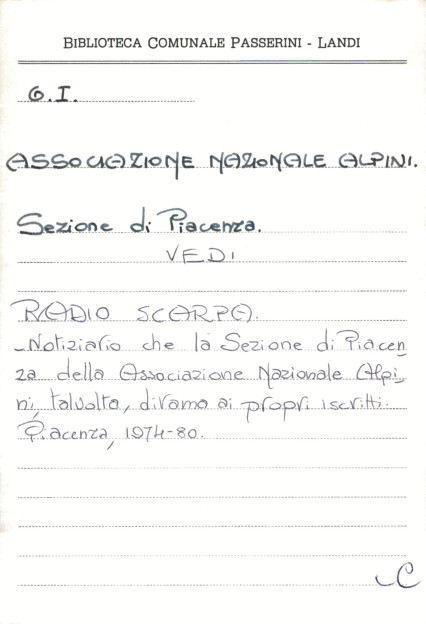 BIBLIOTECA COMUNALE PASSERINI - LANDI
G.I.
ASSOCIAZIONE NAZIONALE ALPINI.
Sezione di Piacenza.
VEDI
RADIO SCARPA.
-Notiziario che la Sezione di Piacen
za della Associazione Nazionale Alpi
ni, talvolta, dirama ai propri iscritti.
Piacenza, 1974-80.
C